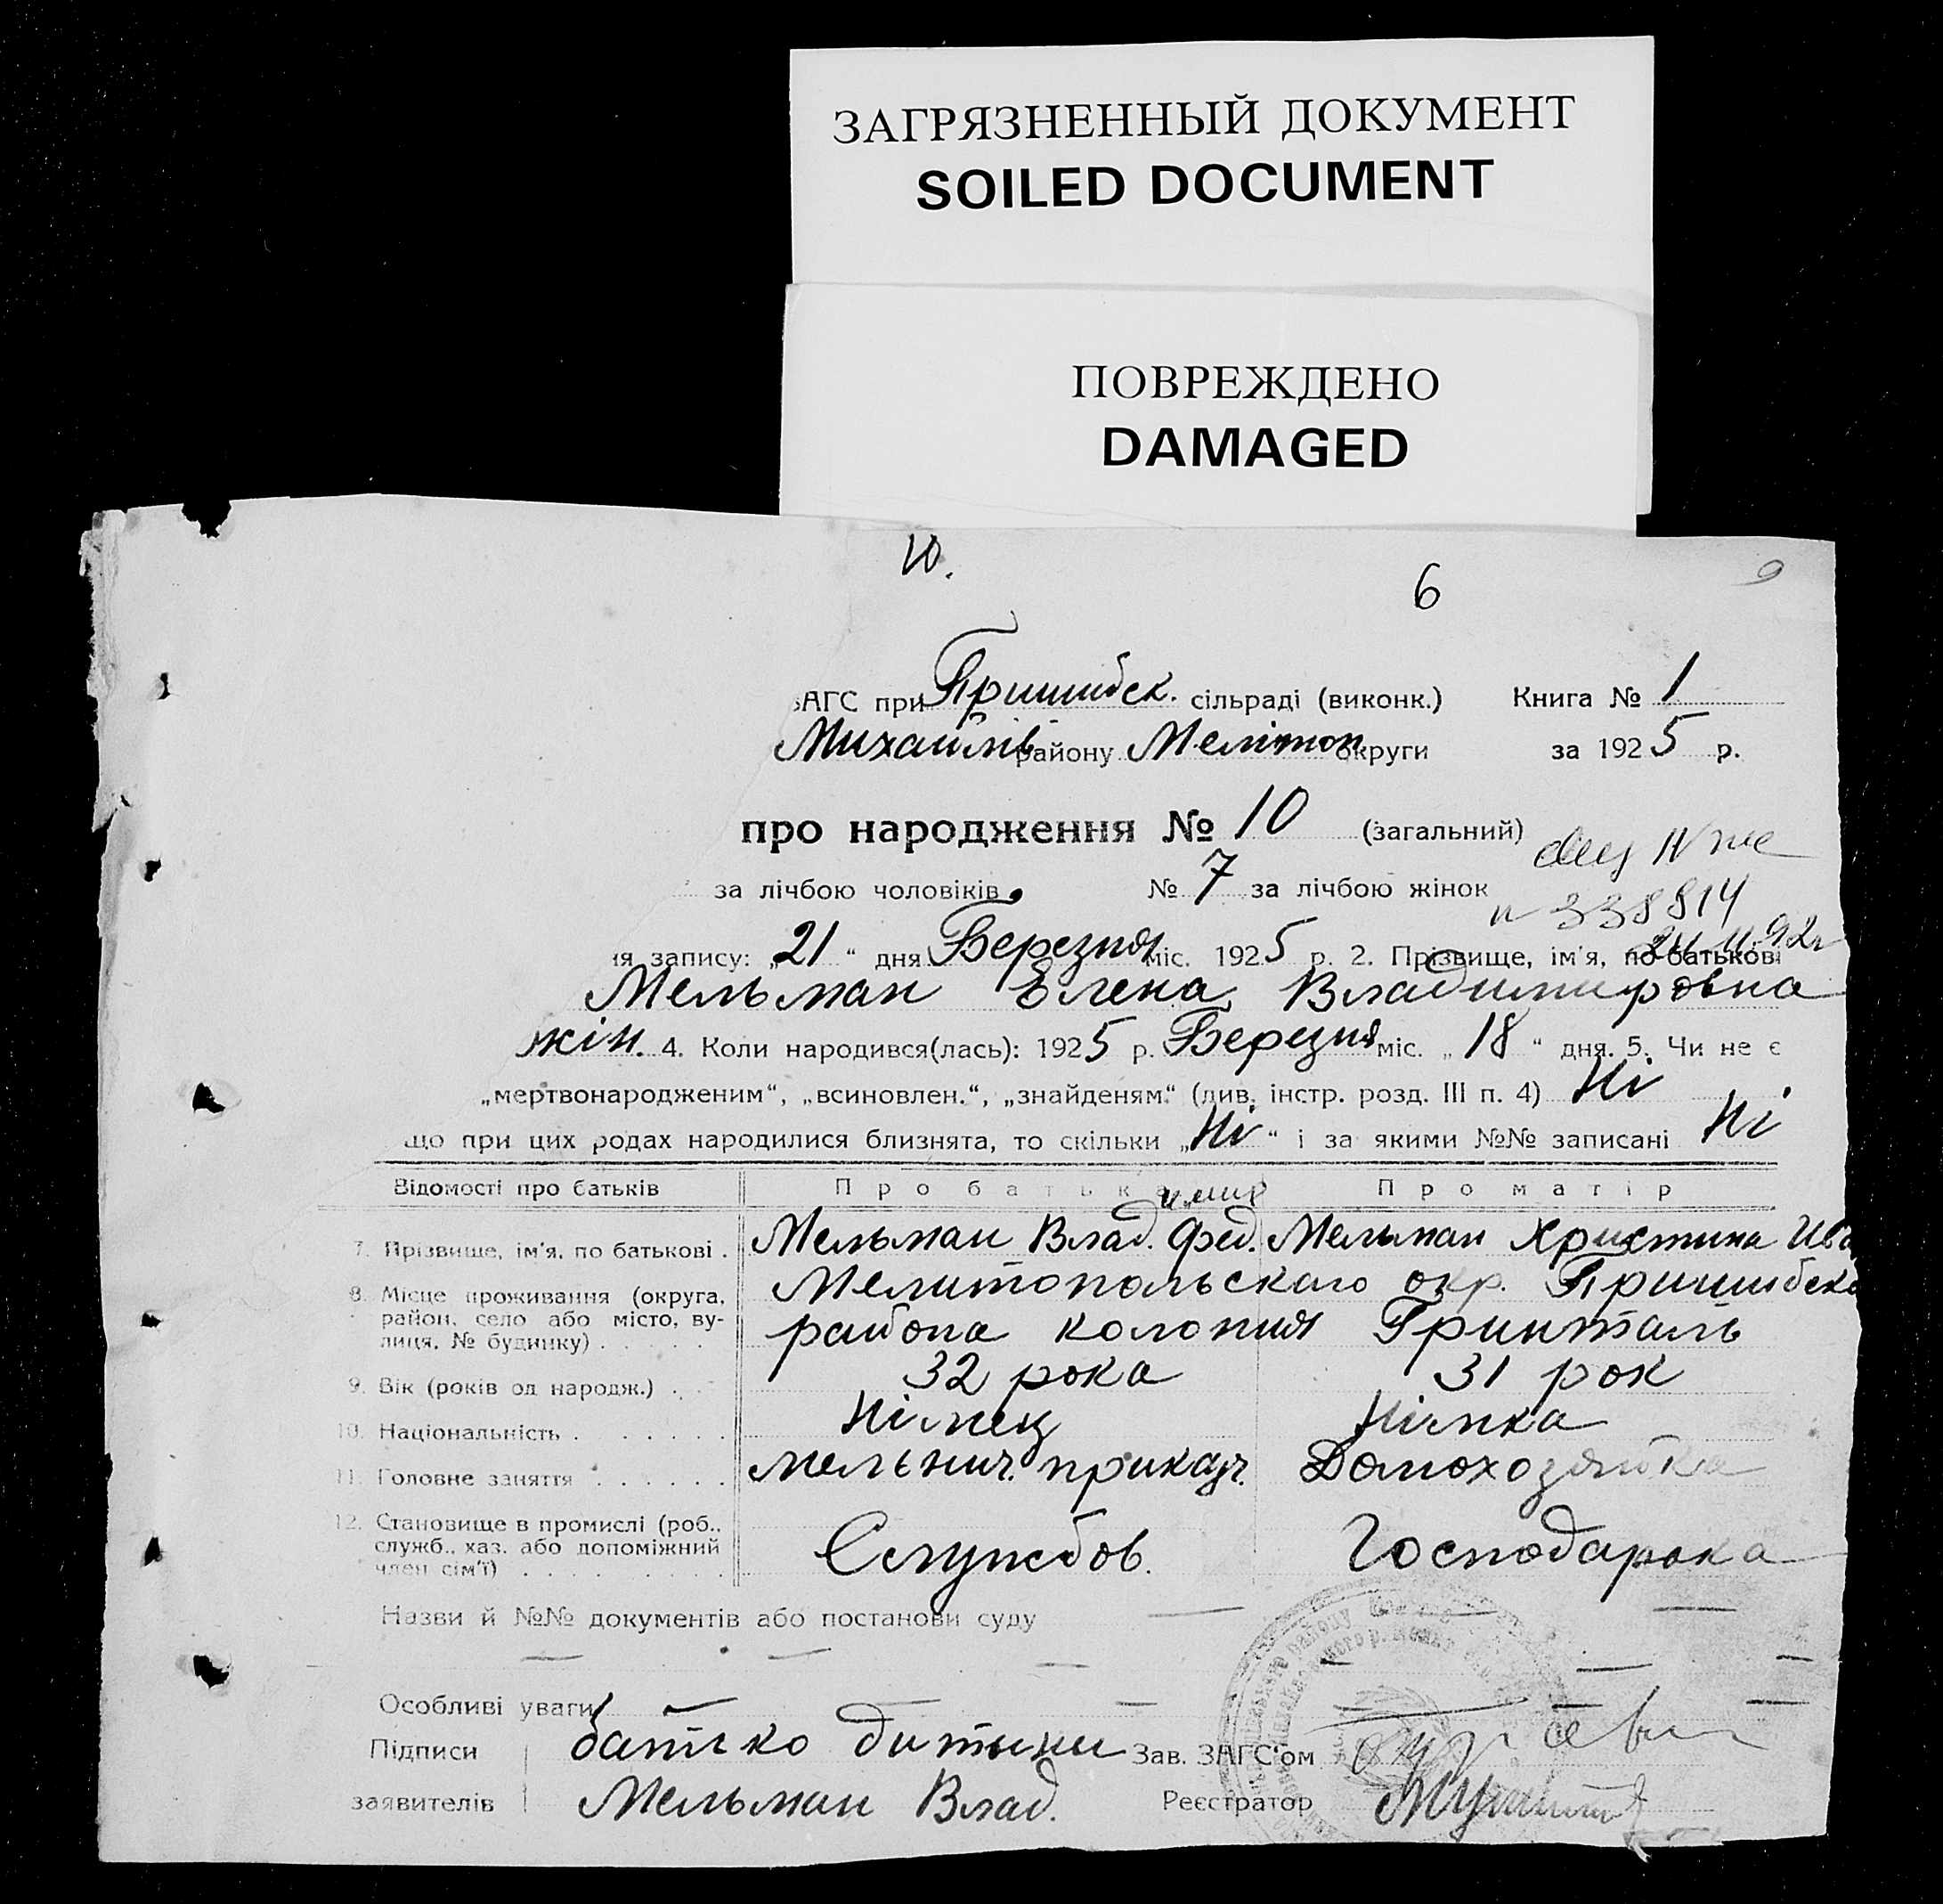 ЗАГРЯЗНЕННЫЙ ДОКУМЕНТ
SOILED DOCUMENT
ПОВРЕЖДЕНО
DAMAGED
10.
6
9
ЗАГС при Пришибск. сільраді (виконк.) Книга № 1
Михайлів району Меліт оп округи за 1925 р.
про народження № 10 (загальний)
за лічбою чоловіків № 7 за лічбою жінок
338814
ня запису: „21“ дня Березня міс. 1925 р. 2. Прізвище, ім'я, по батькові
Мельман Елена Владимировна
жін. 4. Коли народився(лась): 1925 р. Березня міс. „18“ дня. 5. Чи не є
„мертвонародженим“, „всиновлен.“, „знайденям“ (див. інстр. розд. III п. 4) Ні
що при цих родах народилися близнята, то скільки „Ні“ і за якими №№ записані Ні
Відомості про батьків Про батька Про матір
7. Прізвище, ім'я, по батькові . Мельман Влад. Фед. Мельман Христина Ива
8. Місце проживання (округа, Мелитопольского окр. Пришибско
район, село або місто, ву-
лиця, № будинку) . . . . . района колония Гринталь
9. Вік (років од народж.) . 32 рока 31 рок
10. Національність . . . . . . Німец Німка
11. Головне заняття . . . . . . мельнич. приказч. Домохозяйка
12. Становище в промислі (роб.,
служб., хаз. або допоміжний Службов. Господарока
член сім'ї) . . . . . . . . .
Назви й №№ документів або постанови суду
Особливі уваги
Підписи батько дитыни Зав. ЗАГС'ом
заявителів Мельман Влад. Реєстратор